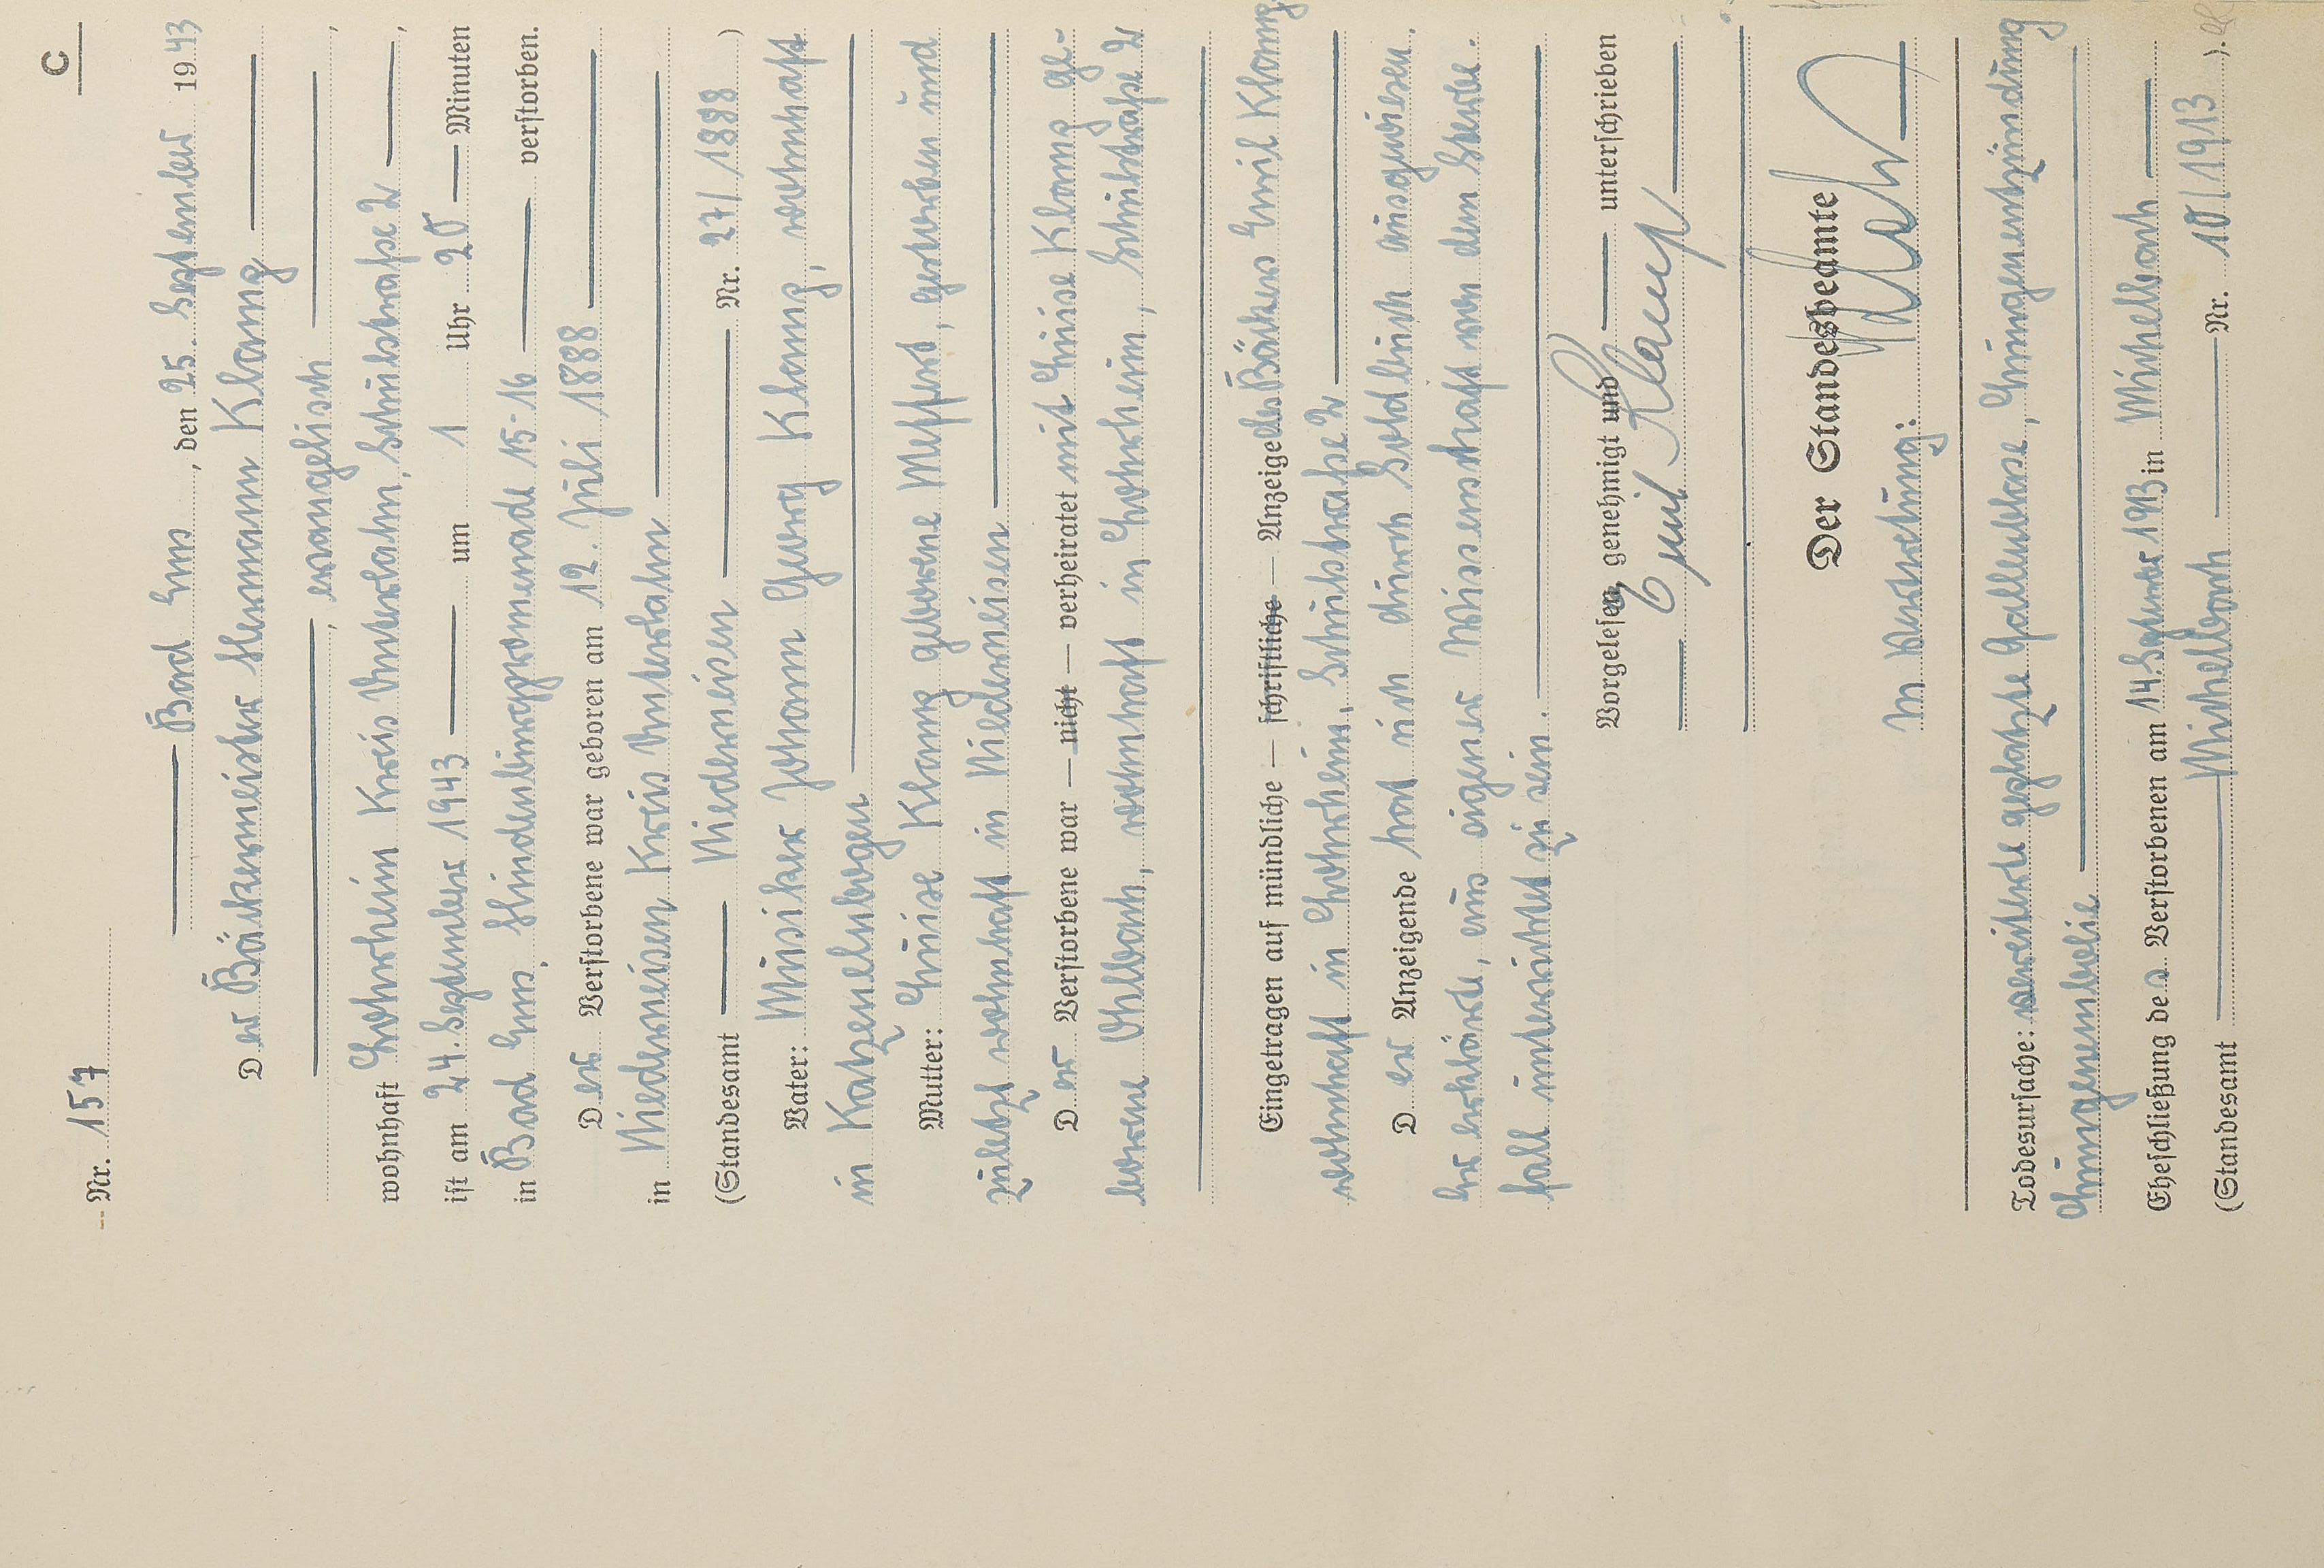 C
Nr. 157
Bad Ems, den 25. September 1943
Der Bäckermeister Hermann Klamp
, evangelisch,
wohnhaft Lohrheim Kreis Unterlahn, Schulstraße 2,
ist am 24. September 1943 um 1 Uhr 20 Minuten
in Bad Ems, Hindenburgpromenade 15-16 verstorben.
Der Verstorbene war geboren am 12. Juli 1888
in Niederneisen Kreis Unterlahn
(Standesamt Niederneisen Nr. 27/1888)
Vater: Musiker Johann Georg Klamp, wohnhaft
in Katzenelnbogen
Mutter: Luise Klamp geborene Meffert, gestorben und
zuletzt wohnhaft in Niederneisen
Der Verstorbene war — nicht — verheiratet mit Luise Klamp ge-
borene Uhlbach, wohnhaft in Lohrheim, Schulstraße 2
Eingetragen auf mündliche — schriftliche — Anzeige des Bäckers Emil Klamp
wohnhaft in Lohrheim, Schulstraße 2
Der Anzeigende hat sich durch Soldbuch ausgewiesen.
Er erklärte, aus eigener Wissenschaft von dem Sterbe-
fall unterrichtet zu sein.
Vorgelesen, genehmigt und unterschrieben
Emil Klamp
Der Standesbeamte
In Vertretung:
Todesursache: vereiterte geplatzte Gallenblase, Lungenentzündung
Lungenembolie
Eheschließung des Verstorbenen am 14. September 1913 in Michelbach
(Standesamt Michelbach Nr. 10/1913).